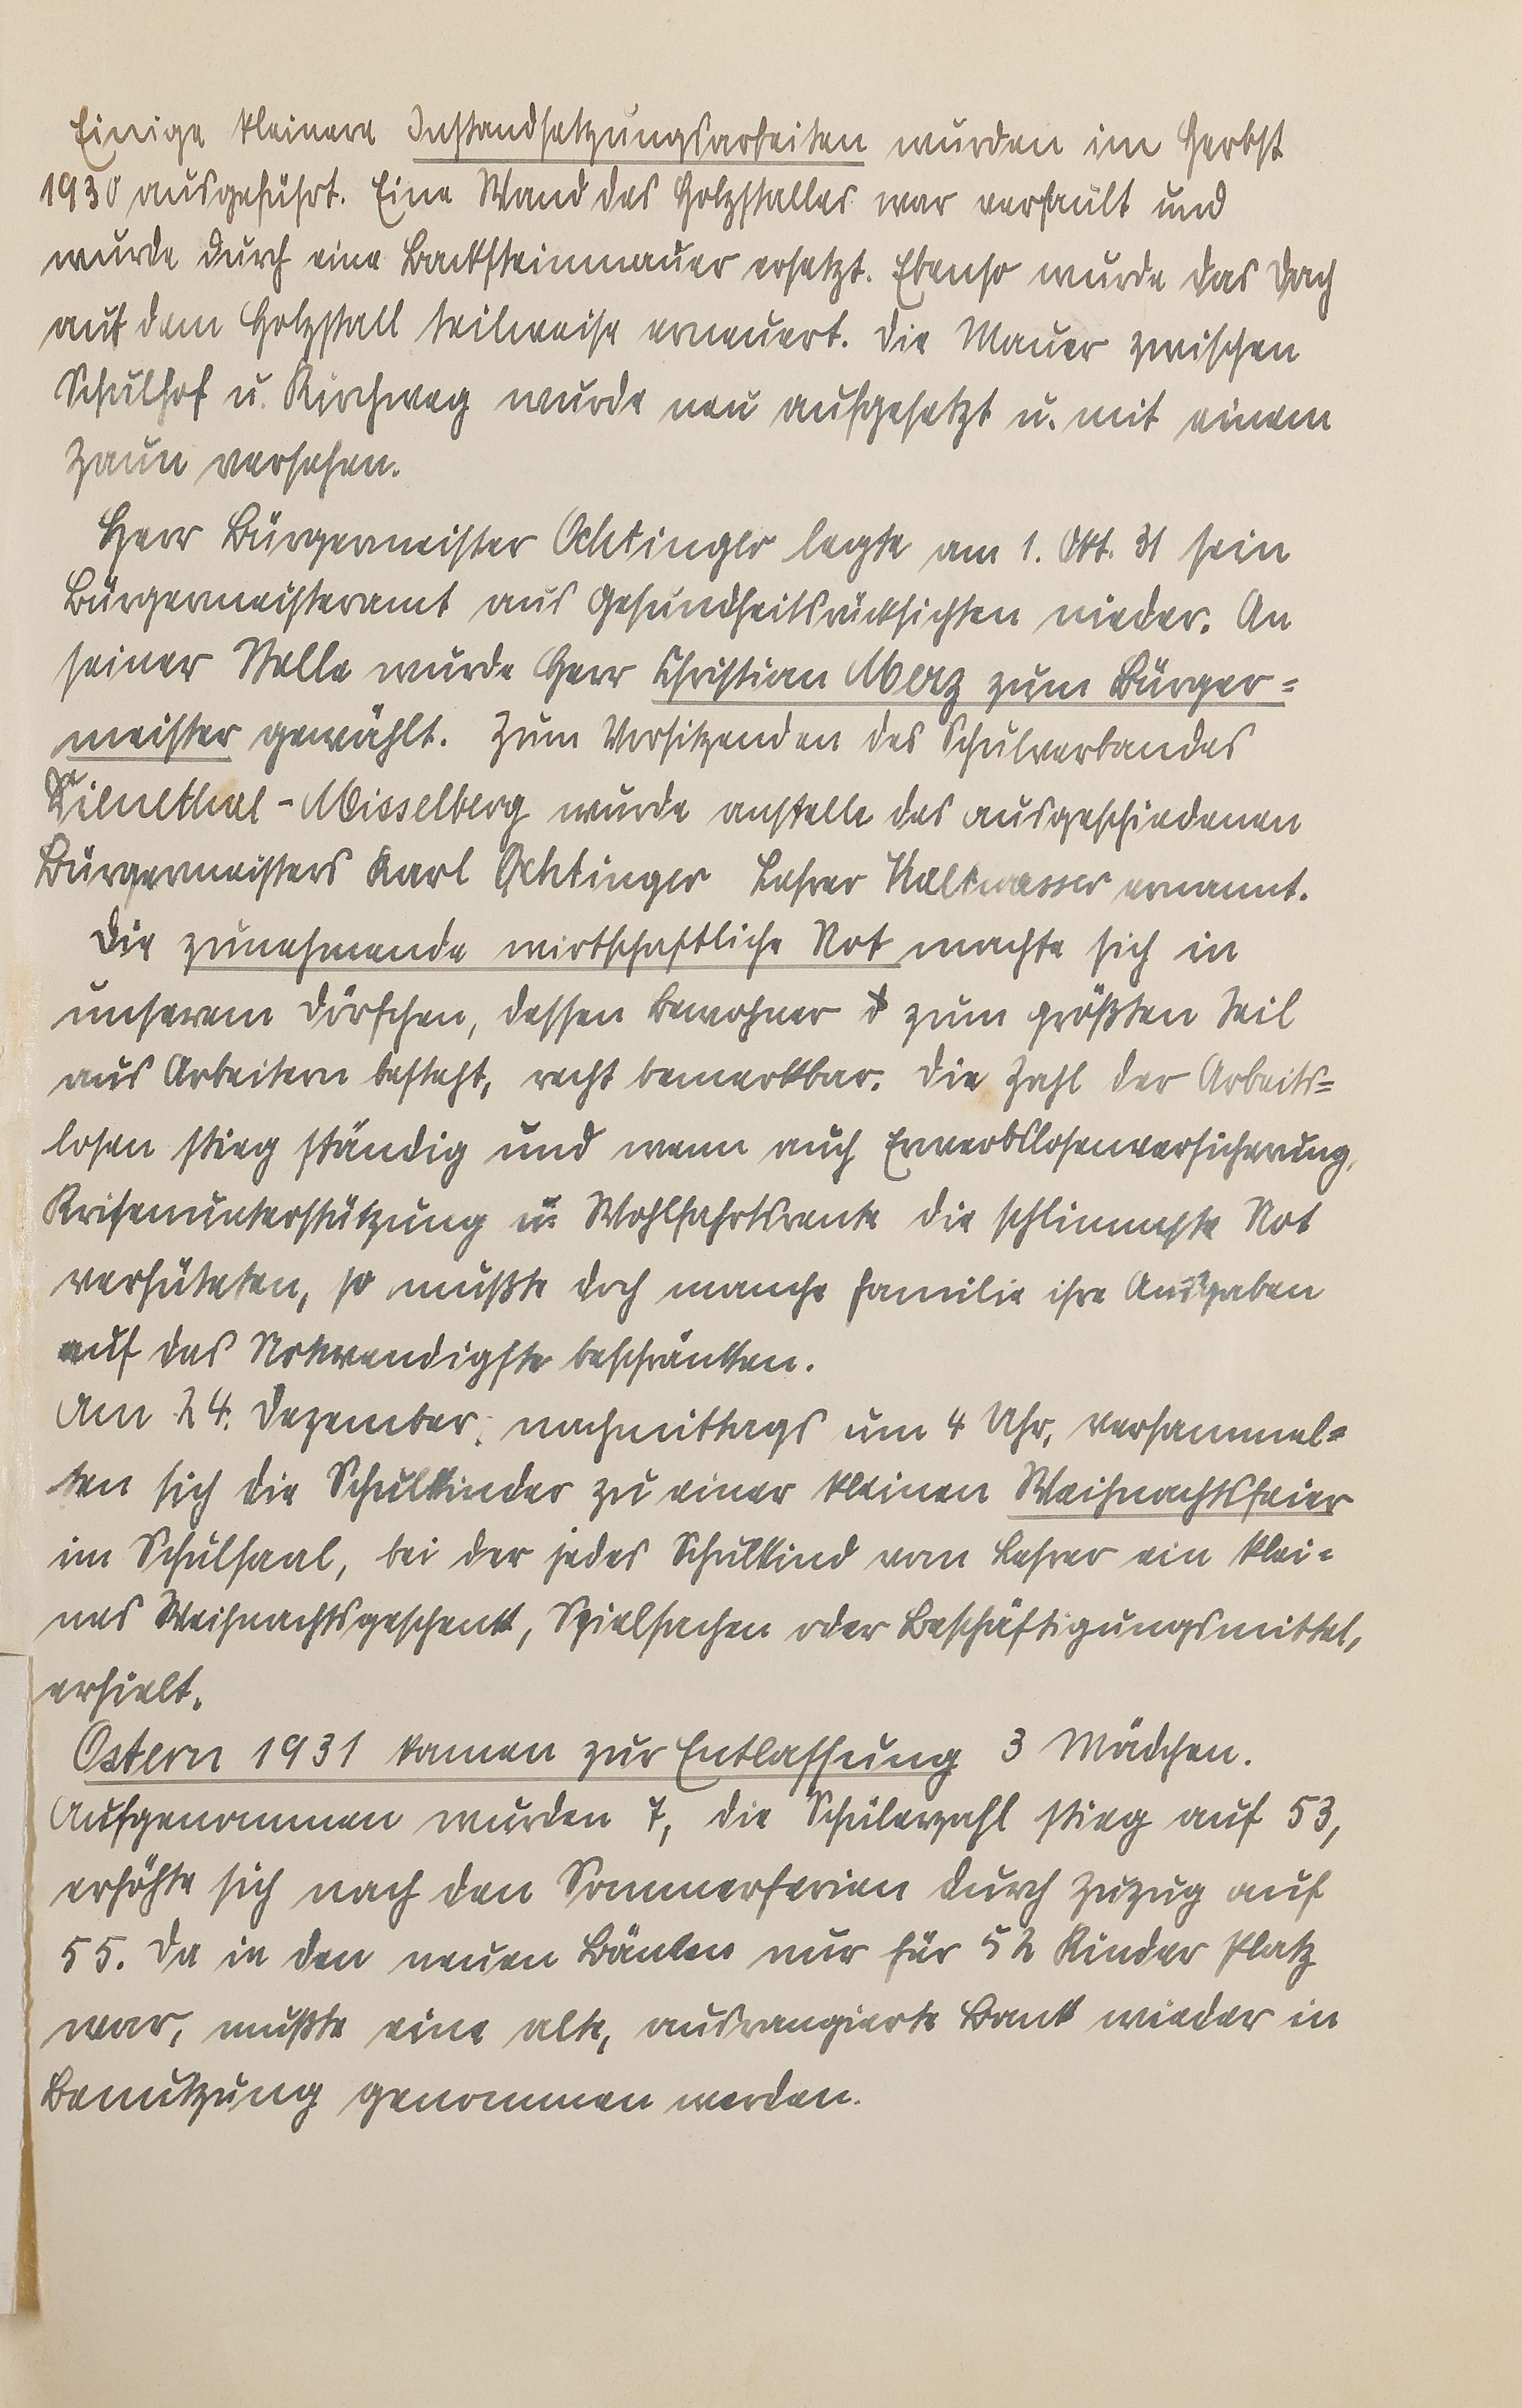 Einige kleinere Instandsetzungsarbeiten wurden im Herbst
1930 ausgeführt. Eine Wand des Holzstalles war verfault und
wurde durch eine Backsteinmauer ersetzt. Ebenso wurde das Dach
auf dem Holzstall teilweise erneuert. Die Mauer zwischen
Schulhof u. Kirchweg wurde neu aufgesetzt u. mit einem
Zaun versehen.
Herr Bürgermeister Ochtinger legte am 1. Okt. 31 sein
Bürgermeisteramt aus Gesundheitsrücksichten nieder. An
seiner Stelle wurde Herr Christian Merz zum Bürger=
meister gewählt. Zum Vorsitzenden des Schulverbandes
-Misselberg wurde anstelle des ausgeschiedenen
Bürgermeisters Karl Ochtinger Lehrer Kaltwasser ernannt.
Die zunehmende wirtschaftliche Not machte sich in
unserem Dörfchen, dessen Bewohner zum größten Teil
aus Arbeitern besteht, recht bemerkbar. Die Zahl der Arbeits=
losen stieg ständig und wenn auch Erwerbslosenversicherung,
Krisenunterstützung u. Wohlfahrtsrente die schlimmste Not
verhüteten, so mußte doch manche Familie ihre Ausgaben
auf das Notwendigste beschränken.
Am 24. Dezember, nachmittags um 4 Uhr, versammel=
ten sich die Schulkinder zu einer kleinen Weihnachtsfeier
im Schulsaal, bei der jedes Schulkind vom Lehrer ein klei=
nes Weihnachtsgeschenk, Spielsachen oder Beschäftigungsmittel,
erhielt.
Ostern 1931 kamen zur Entlassung 3 Mädchen.
Aufgenommen wurden 7, die Schülerzahl stieg auf 53,
erhöhte sich nach den Sommerferien durch Zuzug auf
55. Da in den neuen Bänken nur für 52 Kinder Platz
war, mußte eine alte, ausrangierte Bank wieder in
Benutzung genommen werden.